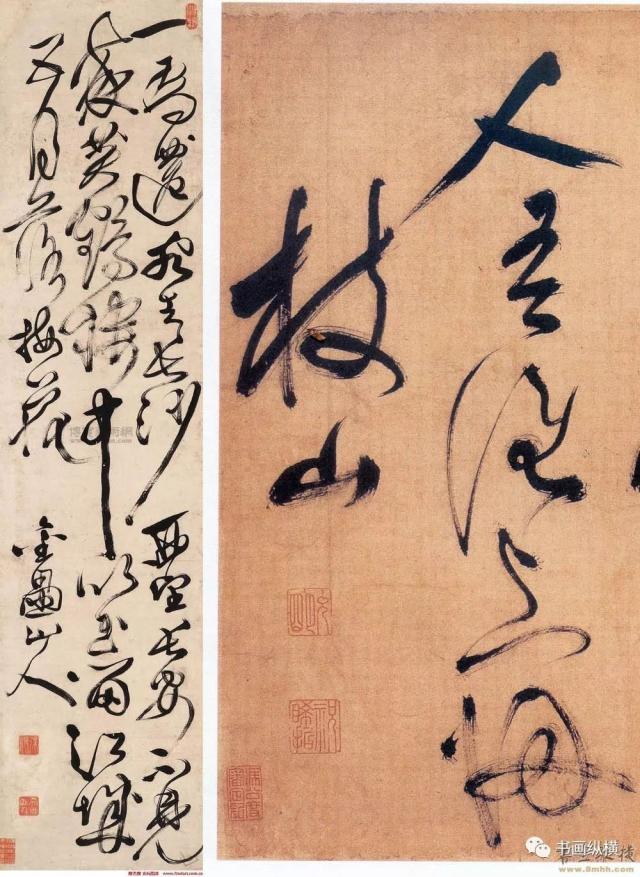 一為遷客去長沙西望長安不見
家黃鶴樓中吹玉笛江城
五月落梅花
金山人
人吾誰與歸
枝山
书画纵横
www.8mhh.com